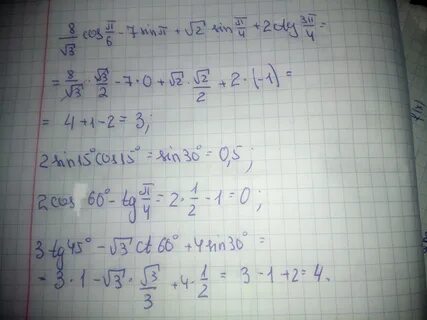 8/√3 cos π/6 - 7 sin π + √2 sin π/4 + 2 ctg 3π/4 =
= 8/√3 · √3/2 - 7·0 + √2 · √2/2 + 2·(-1) =
= 4+1-2=3;
2 sin15° cos15° = sin30° = 0,5;
2 cos 60° - tg π/4 = 2· 1/2 - 1 = 0;
3 tg45° - √3 ct 60° + 4 sin30° =
- 3·1 - √3 · √3/3 + 4· 1/2 = 3 - 1 + 2 = 4.